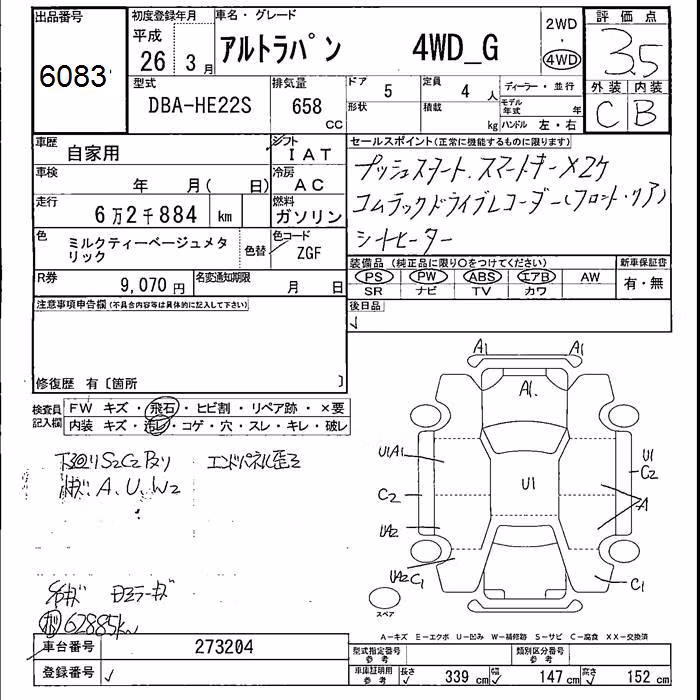 出品番号
6083
初度登録年月
平成
26年 3月
車名・グレード
アルトラパン 4WD_G
2WD
・
4WD
評価点
3.5
外装 内装
C B
型式
DBA-HE22S
排気量
658 CC
ドア 5
形状
定員 4 人
積載 kg
ディーラー・並行
モデル年式 年
ハンドル 左・右
車歴
自家用
シフト
IAT
車検
年 月( 日)
冷房
AC
走行
6万2千884 km
燃料
ガソリン
色
ミルクティーベージュメタ
リック
色替
色コード
ZGF
R券 9,070 円
名変通知期限 月 日
セールスポイント(正常に機能するものに限ります)
プッシュスタート、スマートキー×2ケ
コムテックドライブレコーダー(フロント・リア)
シートヒーター
装備品 (純正品に限り○をつけてください)
PS PW ABS エアB AW
SR ナビ TV カワ
新車保証書
有・無
後日品
注意事項申告欄(不具合内容等は具体的に記入して下さい)
修復歴 有〔箇所 〕
検査員記入欄
FW キズ・飛石・ヒビ割・リペア跡・×要
内装 キズ・汚レ・コゲ・穴・スレ・キレ・破レ
下回りS2C2 エンドパネル歪ミ
A、U、W2
ミラーキズ
62885km
A1 A1
A1
U1A1
U1
U1
C2
C2
A
UA2
UA2C1
C1
スペア
A－キズ E－エクボ U－凹み W－補修跡 S－サビ C－腐食 XX－交換済
車台番号 273204
登録番号
型式指定番号
参考
類別区分番号
参考
車庫証明用
参考
長さ 339 cm 幅 147 cm 高さ 152 cm